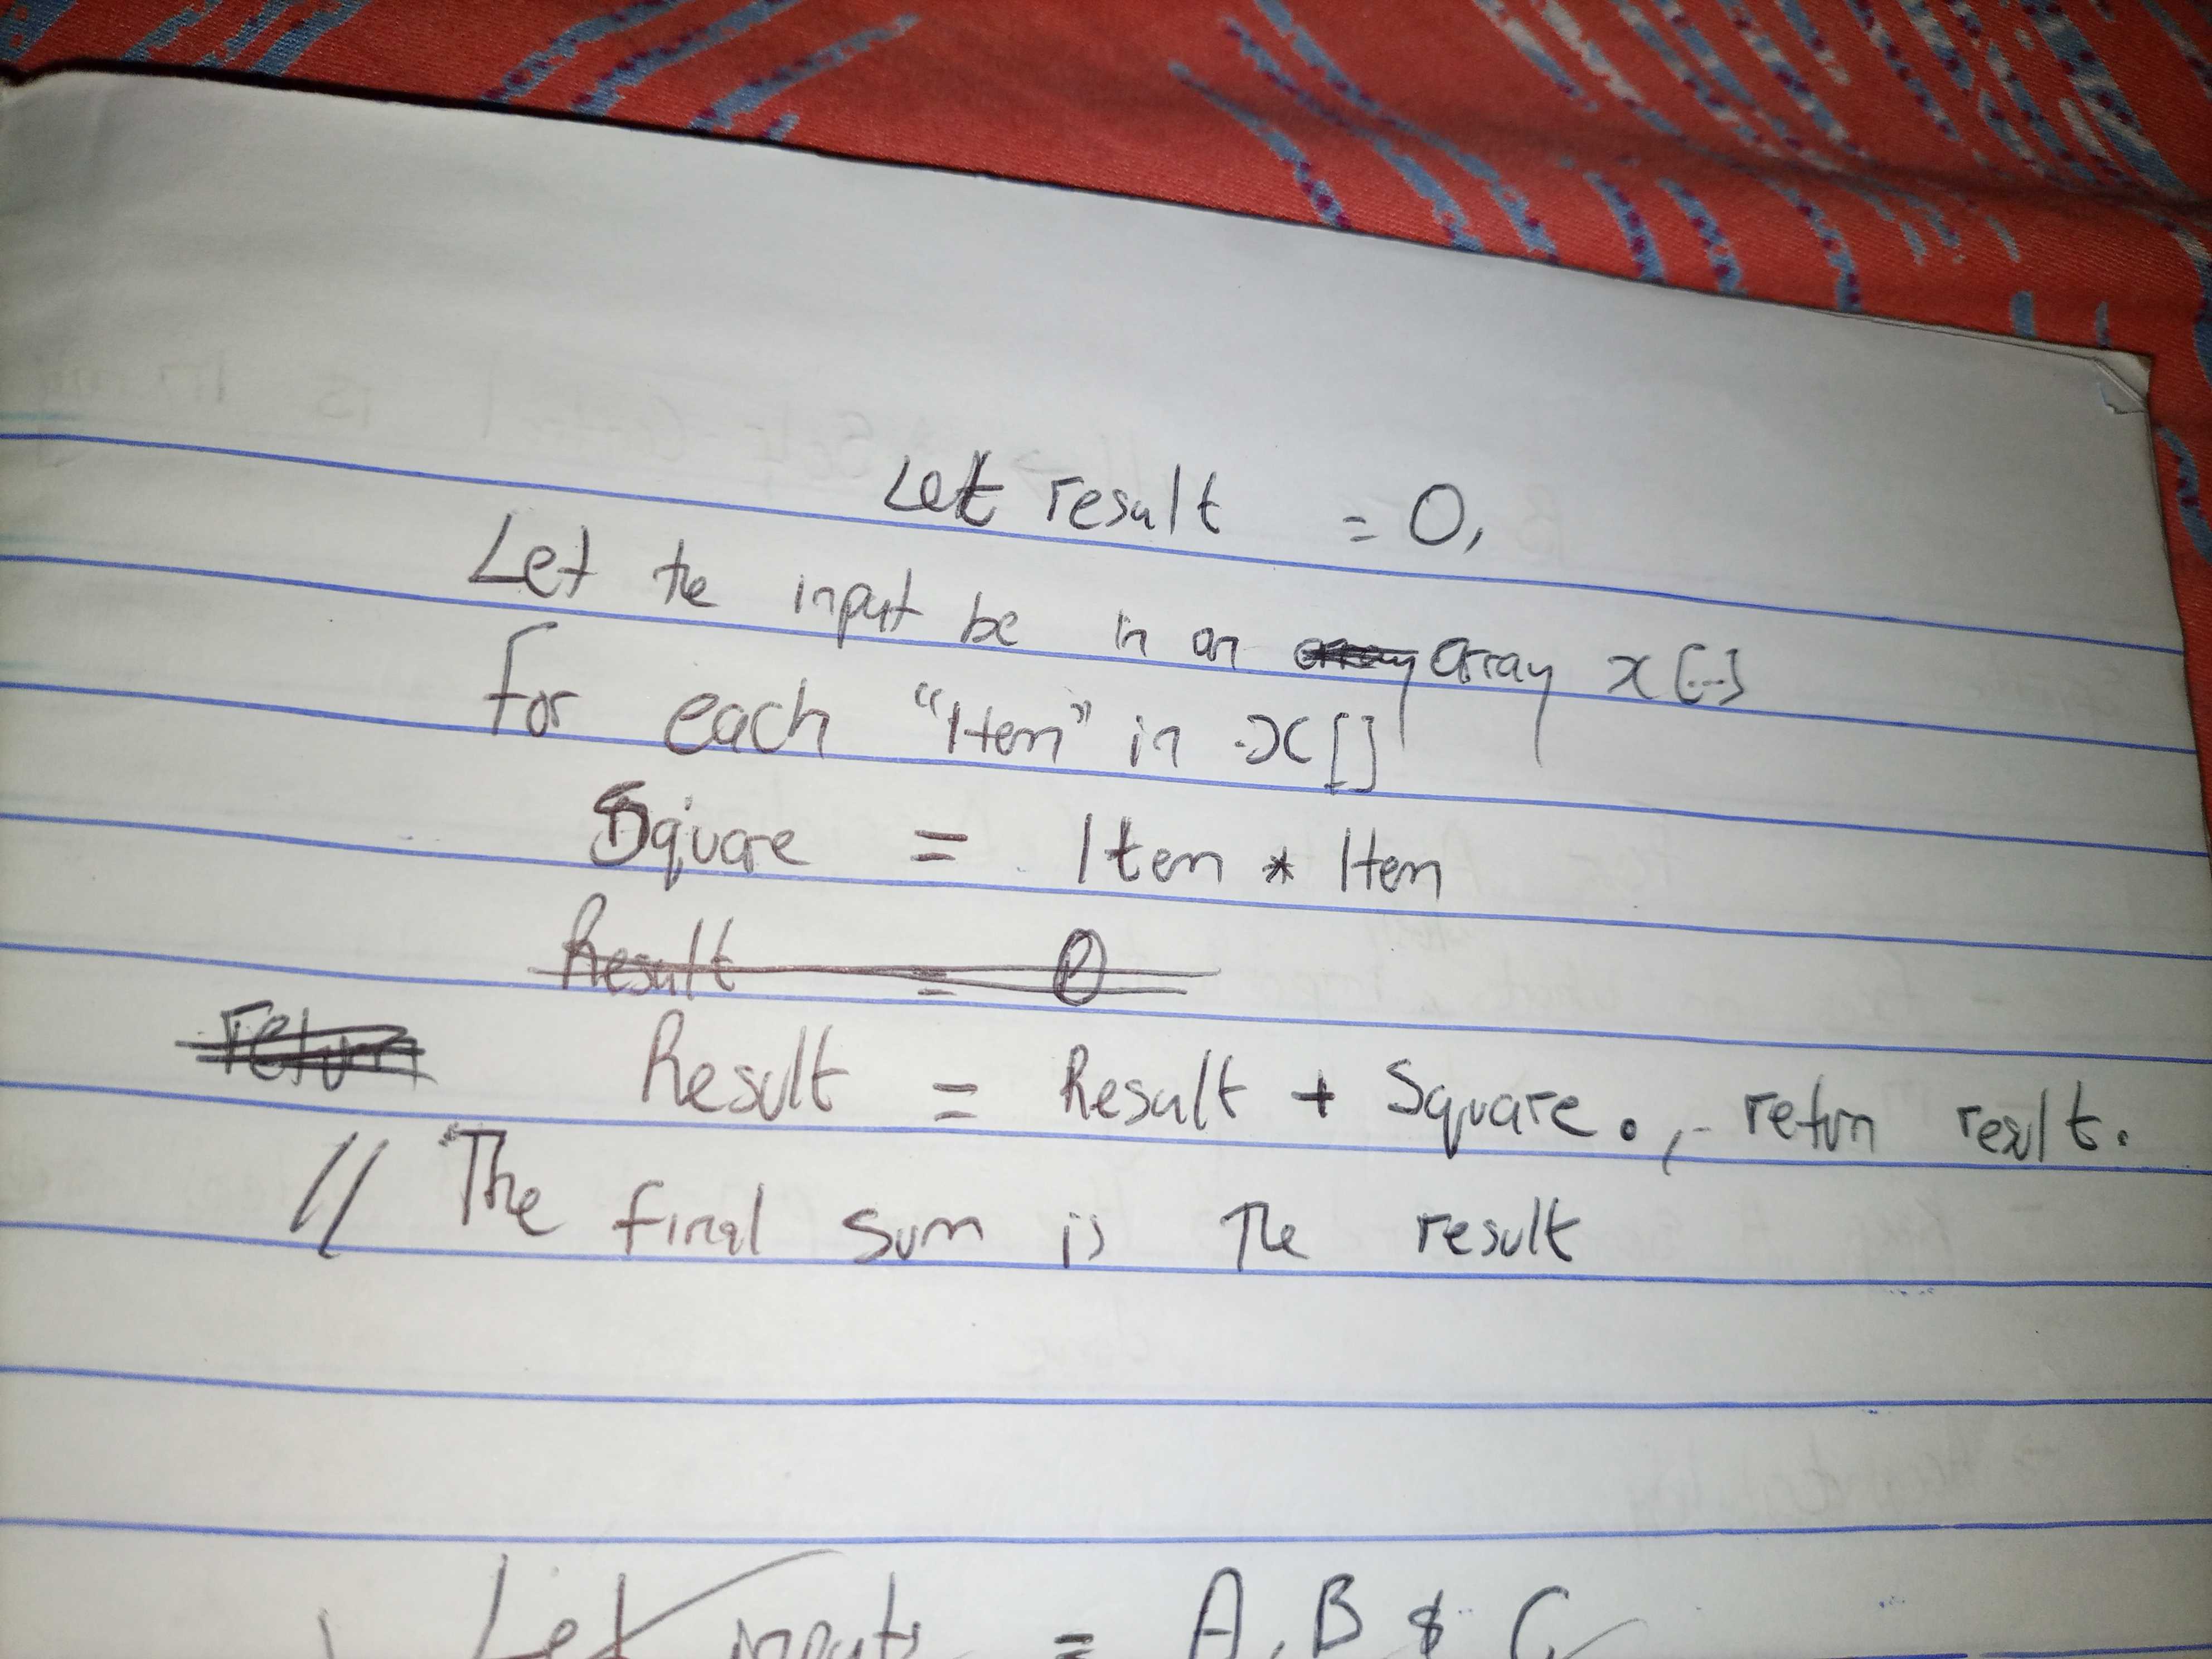 Let result = 0,
Let the input be in an array x[...]
for each "Item" in x[]
Square = Item * Item
Result = 0
return Result = Result + Square. , - return result.
// The final sum is The result
Let inputs = A, B & C